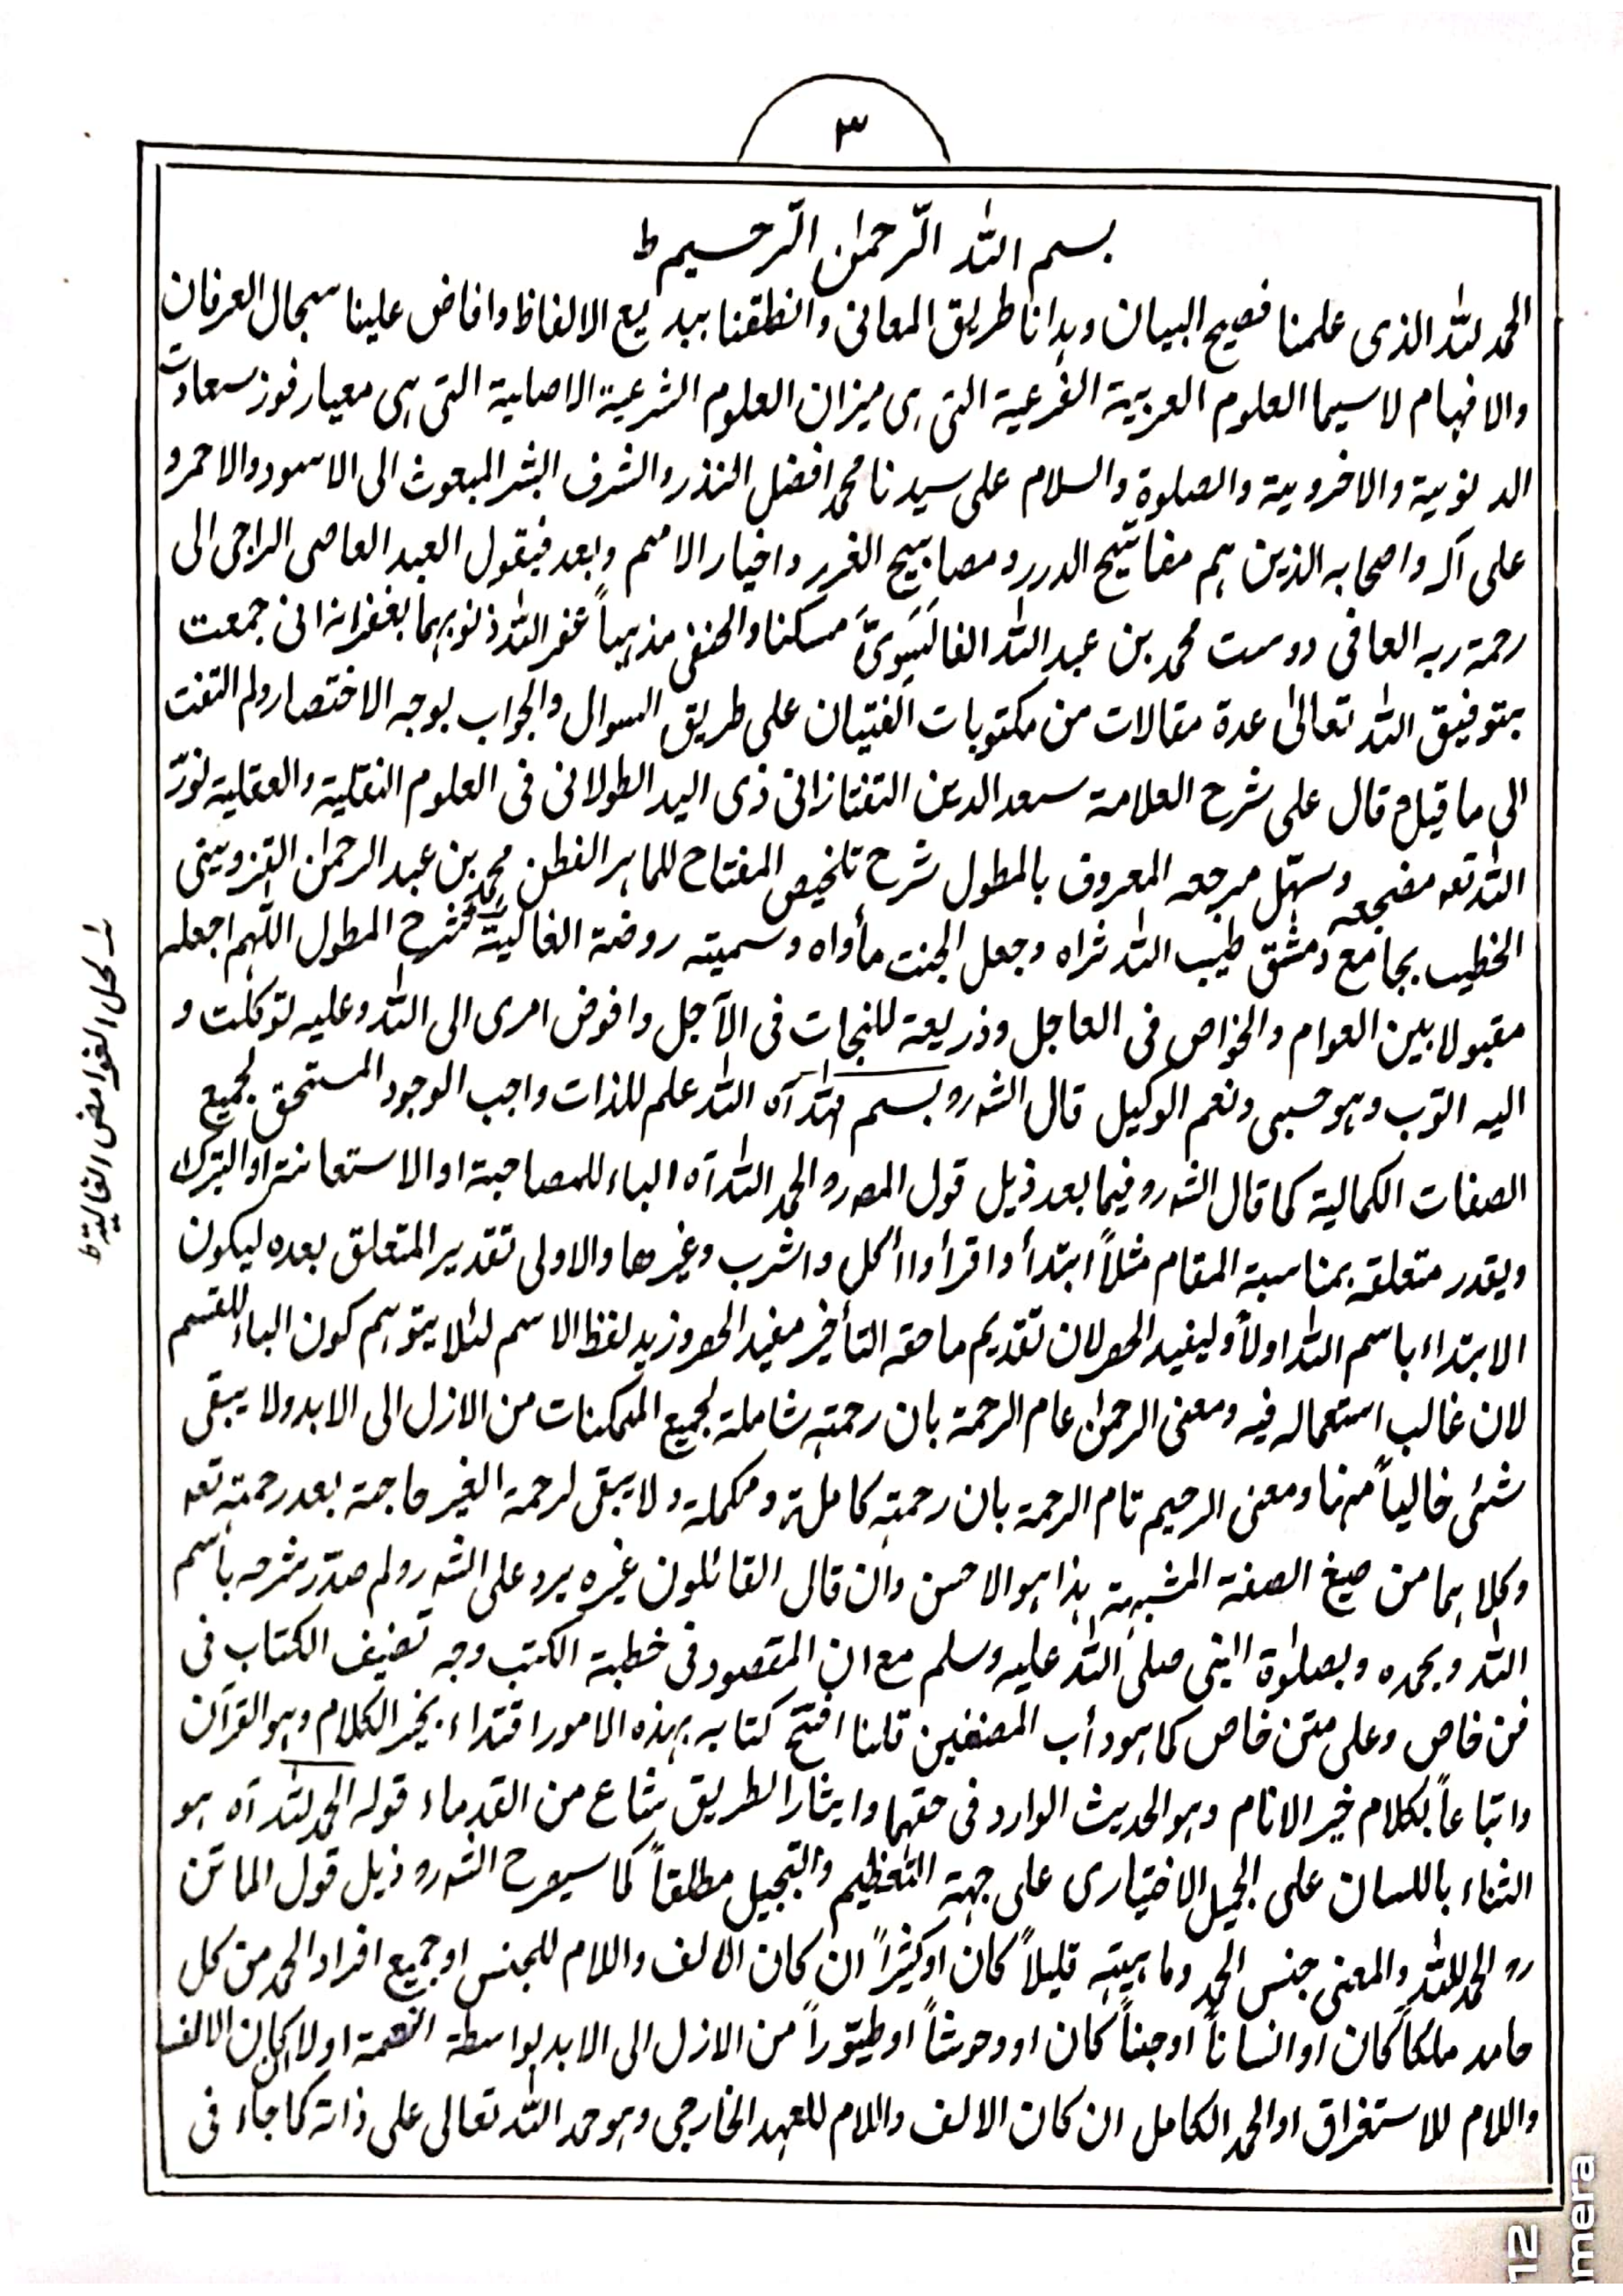 ٣
بسم الله الرّحمٰن الرّحيم ط
الحمد لله الذى علمنا فصيح البيان وہدانا طريق المعانى وانطقنا ببديع الالفاظ وافاض علينا سجال العرفان
والافہام لاسيما العلوم العربيّة الفرعية التى ہى ميزان العلوم الشرعية الاصلية التى ہى معيار فوز سعادت
الدنوبية والاخروبية والصلوة والسلام على سيدنا محمد افضل النذر والشرف البشر المبعوث الى الاسود والاحمر و
على آلہ واصحابہ الذين ہم مفاتيح الدرر ومصابيح الغرر واخيار الامم وبعد فيقول العبد العاصى الراجى الى
رحمة ربہ العافى دوست محمد بن عبد الله الغالبَوىّ مسكنا والحنفى مذہباً غفر الله ذنوبہما بغفرانہ انى جمعت
بتوفيق الله تعالىٰ عدة مقالات من مكتوبات الفتيان على طريق السوال والجواب بوجہ الاختصار ولم التفت
الى ما قيل م قال على شرح العلامة سعد الدين التفتازانى ذى اليد الطولانى فى العلوم النقلية والعقلية نورّ
الله تعہ مضجعہ وسہّل مرجعہ المعروف بالمطول شرح تلخيص المفتاح للماہر الفطن محمد بن عبد الرحمٰن القزوينى
الخطيب بجامع دمشق طيب الله ثراہ وجعل الجنت مأواہ وسميتہ روضة الغاليّة لشرح المطول اللّٰہم اجعلہ
مقبولا بين العوام والخواص فى العاجل وذريعة للنجات فى الآجل وافوض امرى الى الله وعليہ توكلت و
اليہ التوب وہو حسبى ونعم الوكيل قال الشہ رو بسم الله آہ الله علم للذات واجب الوجود المستحق لجميع
الصفات الكمالية كما قال الشہ رو فيما بعد ذيل قول المصہ رو الحمد الله آہ الباء للمصاحبة او الاستعانة او التبرك
ويقدر متعلقہ بمناسبة المقام مثلاً ابتدأ واقرأ واأكل واشرب وغيرها والاولى تقدير المتعلق بعدہ ليكون
الابتداء باسم الله اولاً وليفيد الحصر لان تقديم ما حقہ التأخير مفيد الحصر وزيد لفظ الاسم لئلا يتوہم كون الباء للقسم
لان غالب استعمالہ فيہ ومعنى الرحمٰن عام الرحمة بان رحمتہ شاملة لجميع الممكنات من الازل الى الابد ولا يبقى
شئى خالياً منہا ومعنى الرحيم تام الرحمة بان رحمتہ كاملة ومكملة ولا يبقى لرحمة الغير حاجة بعد رحمتہ تعہ
وكلاہما من صيغ الصفة المشبہة ہذا ہو الاحسن وان قال القائلون غيرہ يرد على الشہ رو لم صدّر شرحہ باسم
الله وبحمدہ وبصلٰوة النبى صلى الله عليہ وسلم مع ان المقصود فى خطبة الكتب وجہ تصنيف الكتاب فى
فن خاص وعلى متن خاص كما ہو دأب المصنفين قلنا افتتح كتابہ بہذہ الامور اقتداء بخير الكلام وہو القرآن
واتباعاً لكلام خير الانام وہو الحديث الوارد فى حقہما وايثارا لطريق شاع من القدماء قولہ الحمد لله آہ ہو
الثناء باللسان على الجميل الاختيارى على جہة التعظيم والتبجيل مطلقاً كما سيصرح الشہ رو ذيل قول الماتن
رو الحمد لله والمعنى جنس الحمد وماہيتہ قليلاً كان او كثيراً ان كان الالف واللام للجنس او جميع افراد الحمد من كل
حامد ملكاً كان او انساناً او جناً كان او وحوشاً او طيّوراً من الازل الى الابد بواسطة النعمة اولا ان كان الالف
واللام للاستغراق او الحمد الكامل ان كان الالف واللام للعہد الخارجى وہو حمد الله تعالى على ذاتہ كما جاء فى
لحل الغوامض الغاليةط
12
mera